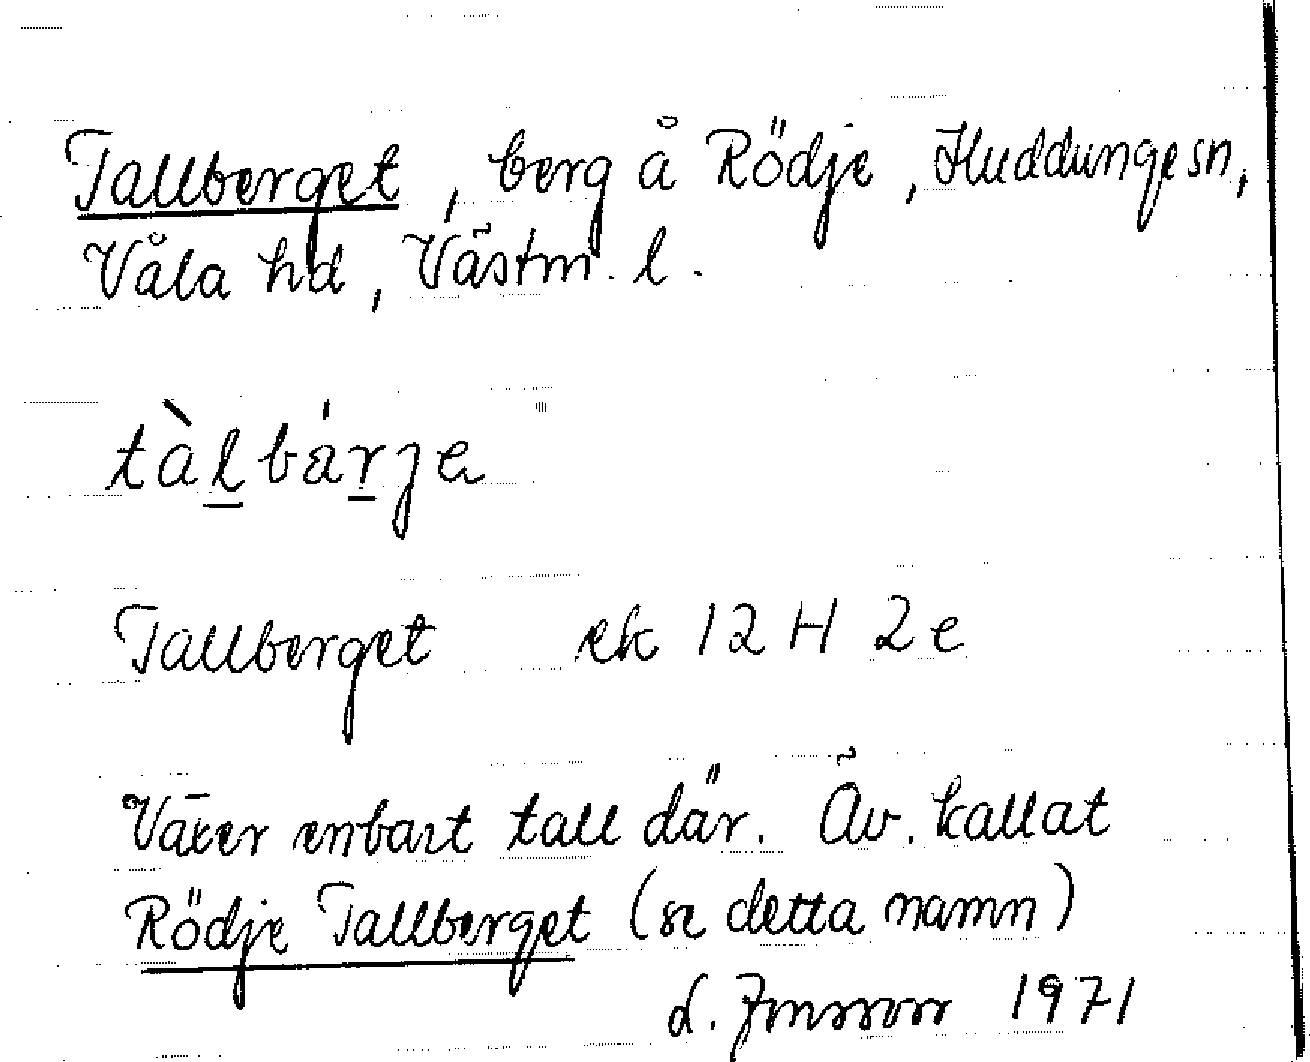 Tallberget, berg å Rödje, Huddunge sn,
Våla hd, Västm. l.
tàlbárje
Tallberget ek 12 H 2e
Växer enbart tall där. Äv. kallat
Rödje Tallberget (se detta namn)
L. Jonsson 1971